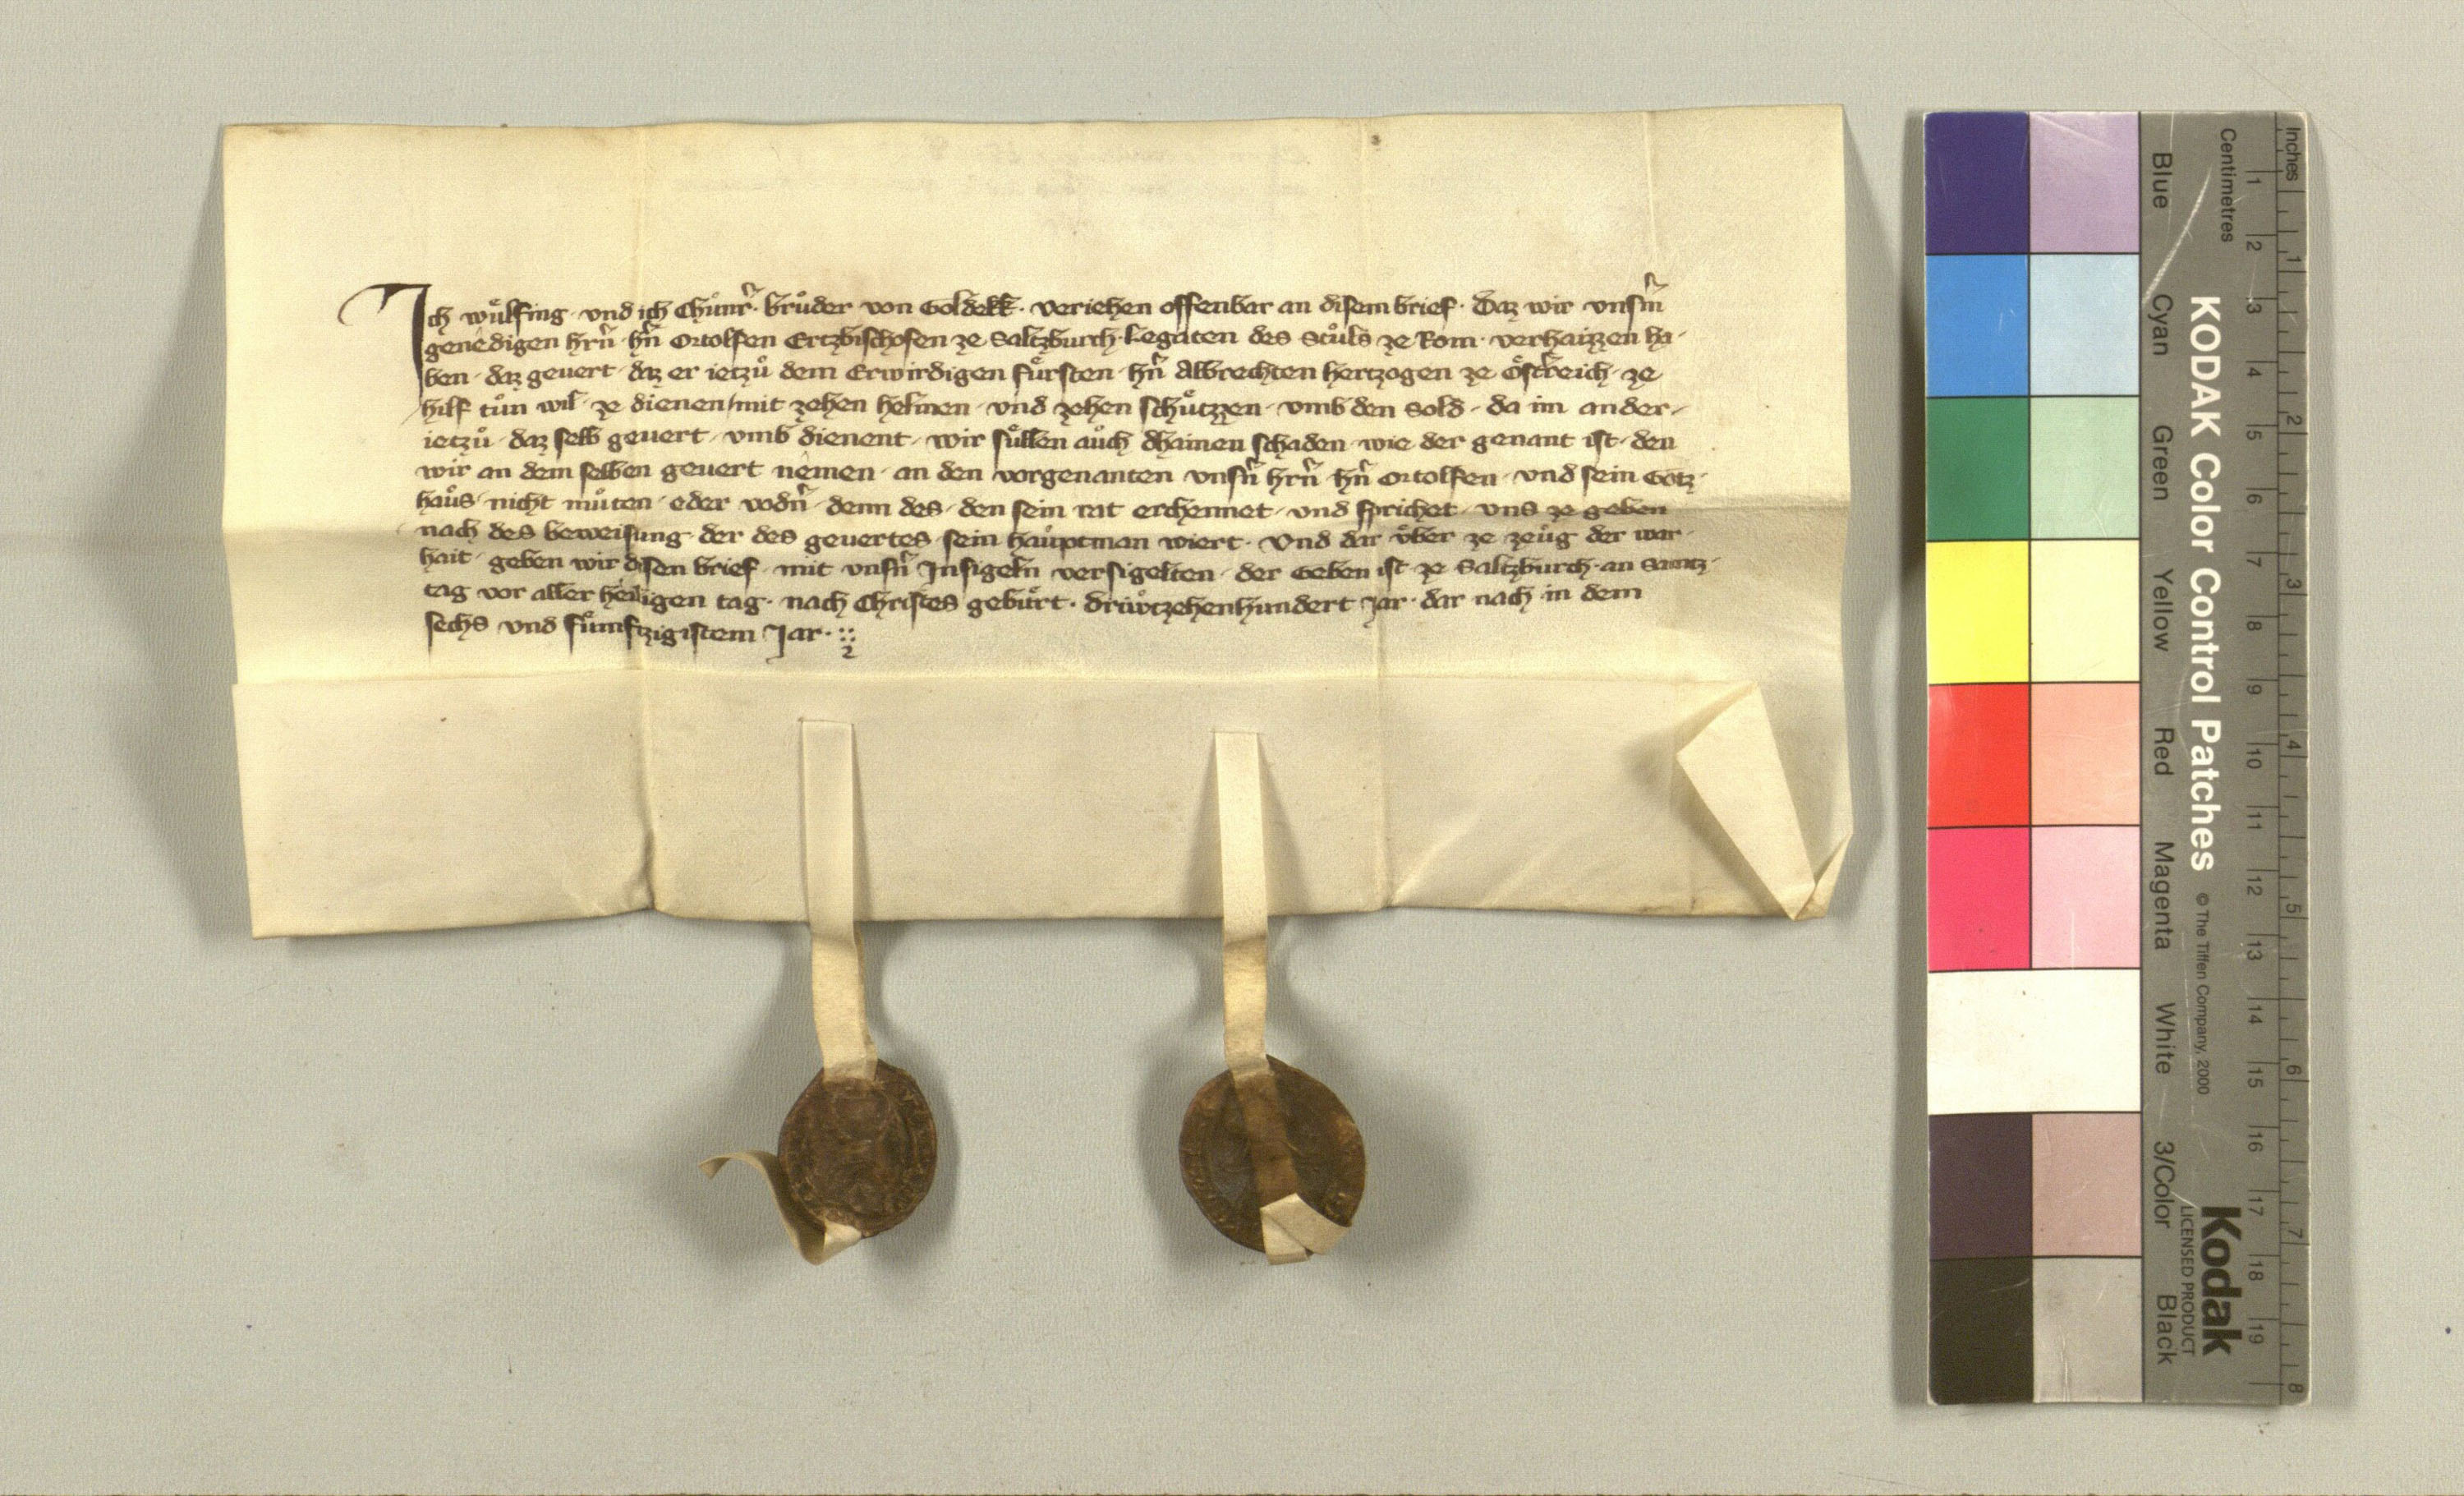 Ich wuͤlfing · vnd ich Chuͤnr̃ · bruͤder von Goldekk · veriehen offenbar an disem brief · Daz wir vnsm̃
genêdigen hrñ · hñ Ortolfen Ertzbischofen ze Saltzburch · Legaten des Stuͤls ze Rom · verhaizzen ha-
ben · daz geuert · daz er ietzuͦ dem Erwirdigen fuͤrsten · hñ Albrechten hertzogen ze oͤstr̃reich · ze
hilf tuͦn wil · ze dienen / mit zehen helmen · vnd zehen schuͤtzzen · vmb den Sold · da im ander ·
ietzuͦ · daz selb geuert · vmb dienent · wir suͤllen auͦch dhainen schaden · wie der genant ist · den
wir an dem selben geuert nêmen · an den vorgenanten vnsñ hrñ hñ Ortolfen · vnd sein Gotz-
haus · nicht muͦten · eder vodñ · denn des · den sein rat erchennet · vnd sprichet · vns ze geben
nach des beweisung der des geuertes sein hauͦptman wiert · Vnd dar vͤber ze zeuͤg der war-
hait · geben wir disen brief · mit vnsñ Insigeln versigelten · der Geben ist ze Saltzburch · an Samtz-
tag vor aller heiligen tag · nach Christes gebuͤrt · driwtzehenhundert Jar · dar nach in dem
sechs vnd fuͤmftzigistem Jar ·
Inches
Centimetres
KODAK Color Control Patches
© The Tiffen Company, 2000
Kodak
LICENSED PRODUCT
Blue
Cyan
Green
Yellow
Red
Magenta
White
3/Color
Black
1 2 3 4 5 6 7 8 9 10 11 12 13 14 15 16 17 18 19
1 2 3 4 5 6 7 8